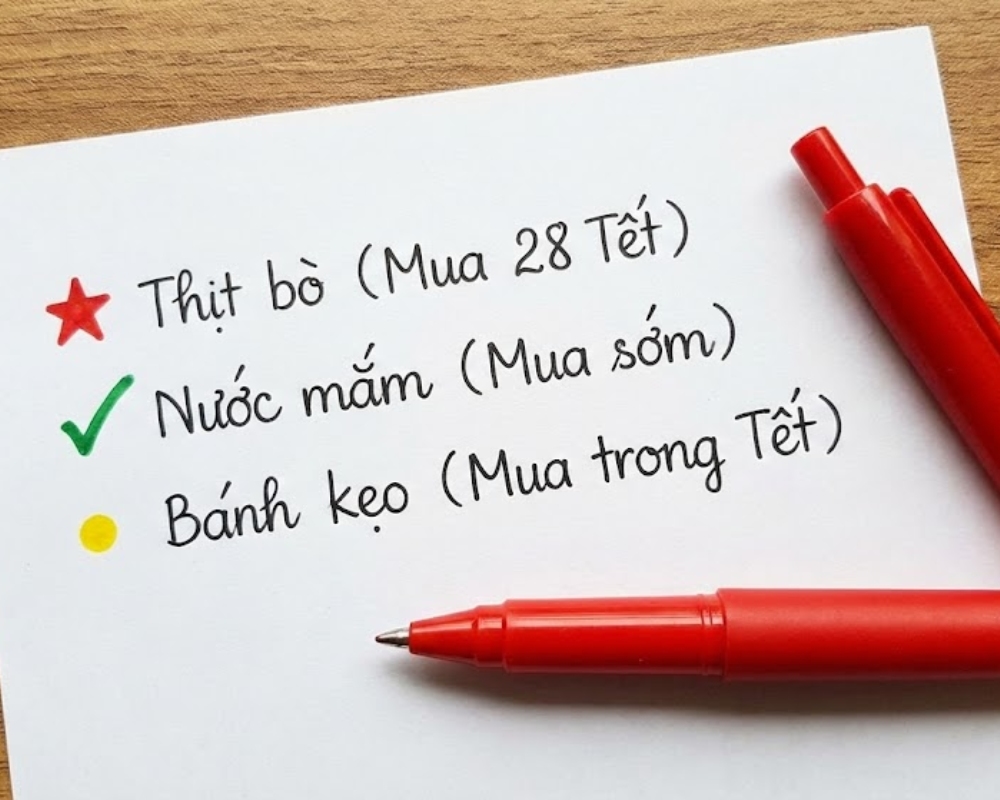 Thịt bò (Mua 28 Tết)
Nước mắm (Mua sớm)
Bánh kẹo (Mua trong Tết)